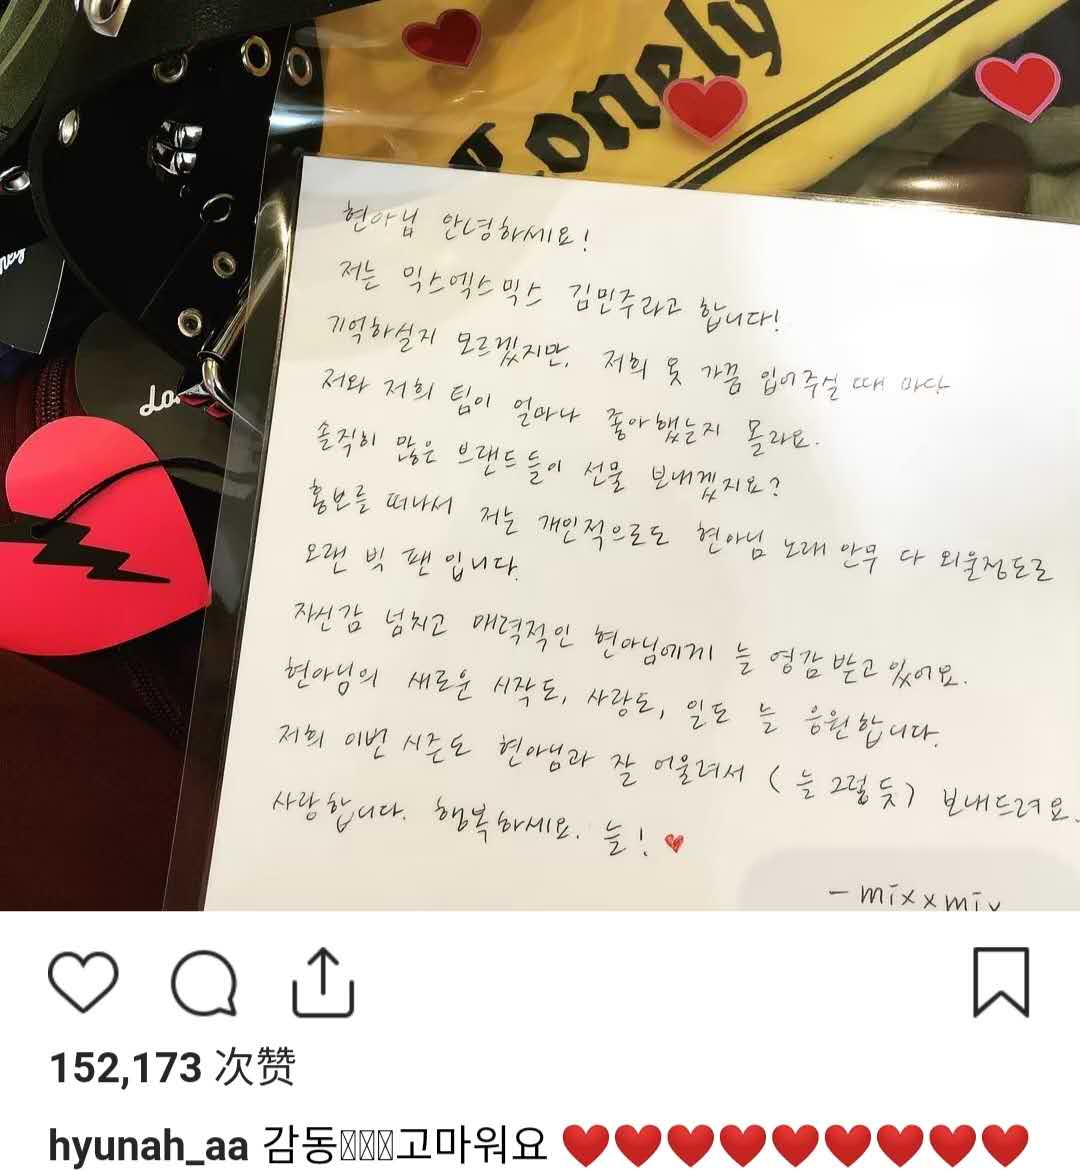 Lonely
현아님 안녕하세요!
저는 믹스엑스믹스 김민주라고 합니다!
기억하실지 모르겠지만, 저희 옷 가끔 입어주실 때 마다
저와 저희 팀이 얼마나 좋아했는지 몰라요.
솔직히 많은 브랜드들이 선물 보내겠지요?
홍보를 떠나서 저는 개인적으로도 현아님 노래 안무 다 외울정도로
오랜 빅 팬 입니다.
자신감 넘치고 매력적인 현아님에게 늘 영감 받고 있어요.
현아님의 새로운 시작도, 사랑도, 일도 늘 응원합니다.
저희 이번 시즌도 현아님과 잘 어울려서 (늘 그렇듯) 보내드려요.
사랑합니다. 행복하세요. 늘! ♥
- mixxmix
152,173 次赞
hyunah_aa 감동고마워요 ❤️❤️❤️❤️❤️❤️❤️❤️❤️